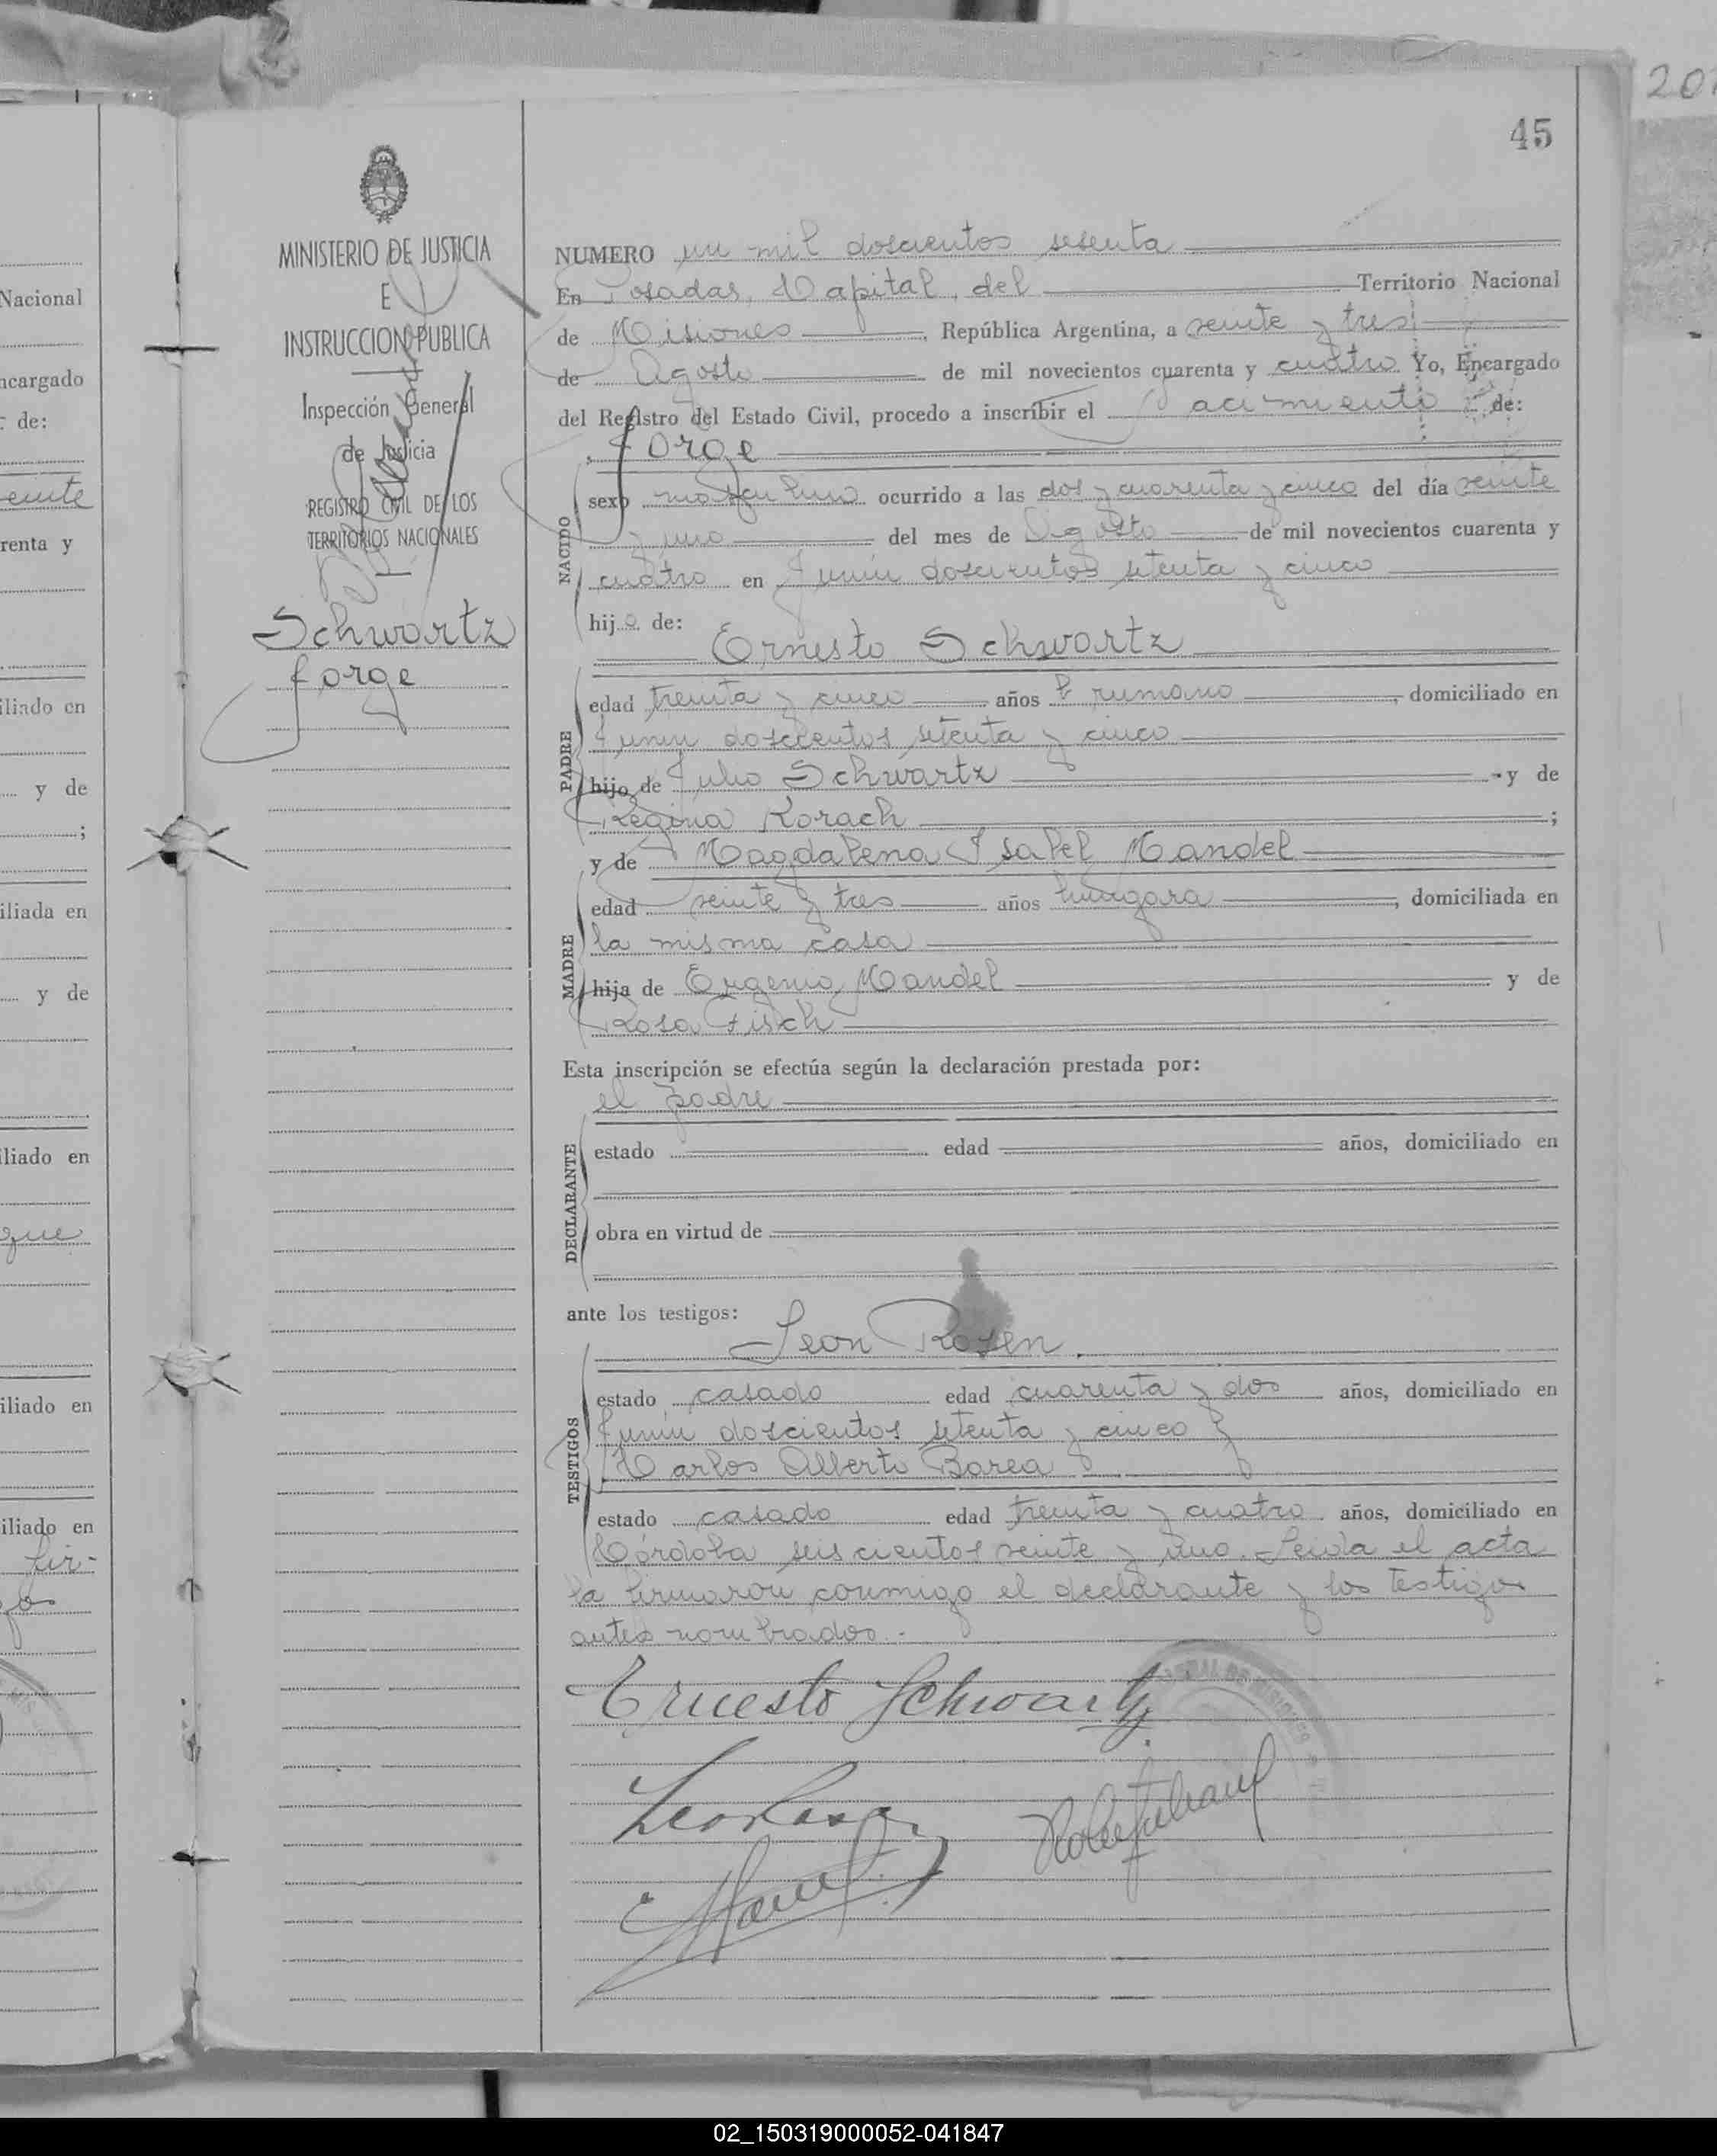 201
45
MINISTERIO DE JUSTICIA
E
INSTRUCCION PUBLICA
Inspección General
de Justicia
REGISTRO CIVIL DE LOS
TERRITORIOS NACIONALES
Schwartz
Jorge
NUMERO un mil doscientos sesenta
En Posadas, Capital, del Territorio Nacional
de Misiones, República Argentina, a veinte y tres
de Agosto de mil novecientos cuarenta y cuatro Yo, Encargado
del Registro del Estado Civil, procedo a inscribir el Nacimiento de:
Jorge
NACIDO
sexo masculino ocurrido a las dos y cuarenta y cinco del día veinte
y uno del mes de Agosto de mil novecientos cuarenta y
cuatro en Junin doscientos setenta y cinco
hijo de:
Ernesto Schwartz
PADRE
edad treinta y cinco años rumano, domiciliado en
Junin doscientos setenta y cinco
hijo de Julio Schwartz y de
Regina Korach;
y de Magdalena Isabel Mandel
MADRE
edad veinte y tres años húngara, domiciliada en
la misma casa
hija de Eugenio Mandel y de
Rosa Fisch
Esta inscripción se efectúa según la declaración prestada por:
el padre
DECLARANTE
estado edad años, domiciliado en
obra en virtud de
ante los testigos:
Leon Rosen.
TESTIGOS
estado casado edad cuarenta y dos años, domiciliado en
Junin doscientos setenta y cinco y
Carlos Alberto Barea
estado casado edad treinta y cuatro años, domiciliado en
Córdoba seiscientos veinte y uno. Leida el acta
la firmaron conmigo el declarante y los testigos
antes nombrados.-
Ernesto Schwartz
Nacional
ncargado
de:
veinte
renta y
iliado en
y de
;
iliada en
y de
iliado en
que
iliado en
iliado en
fir-
02_150319000052-041847